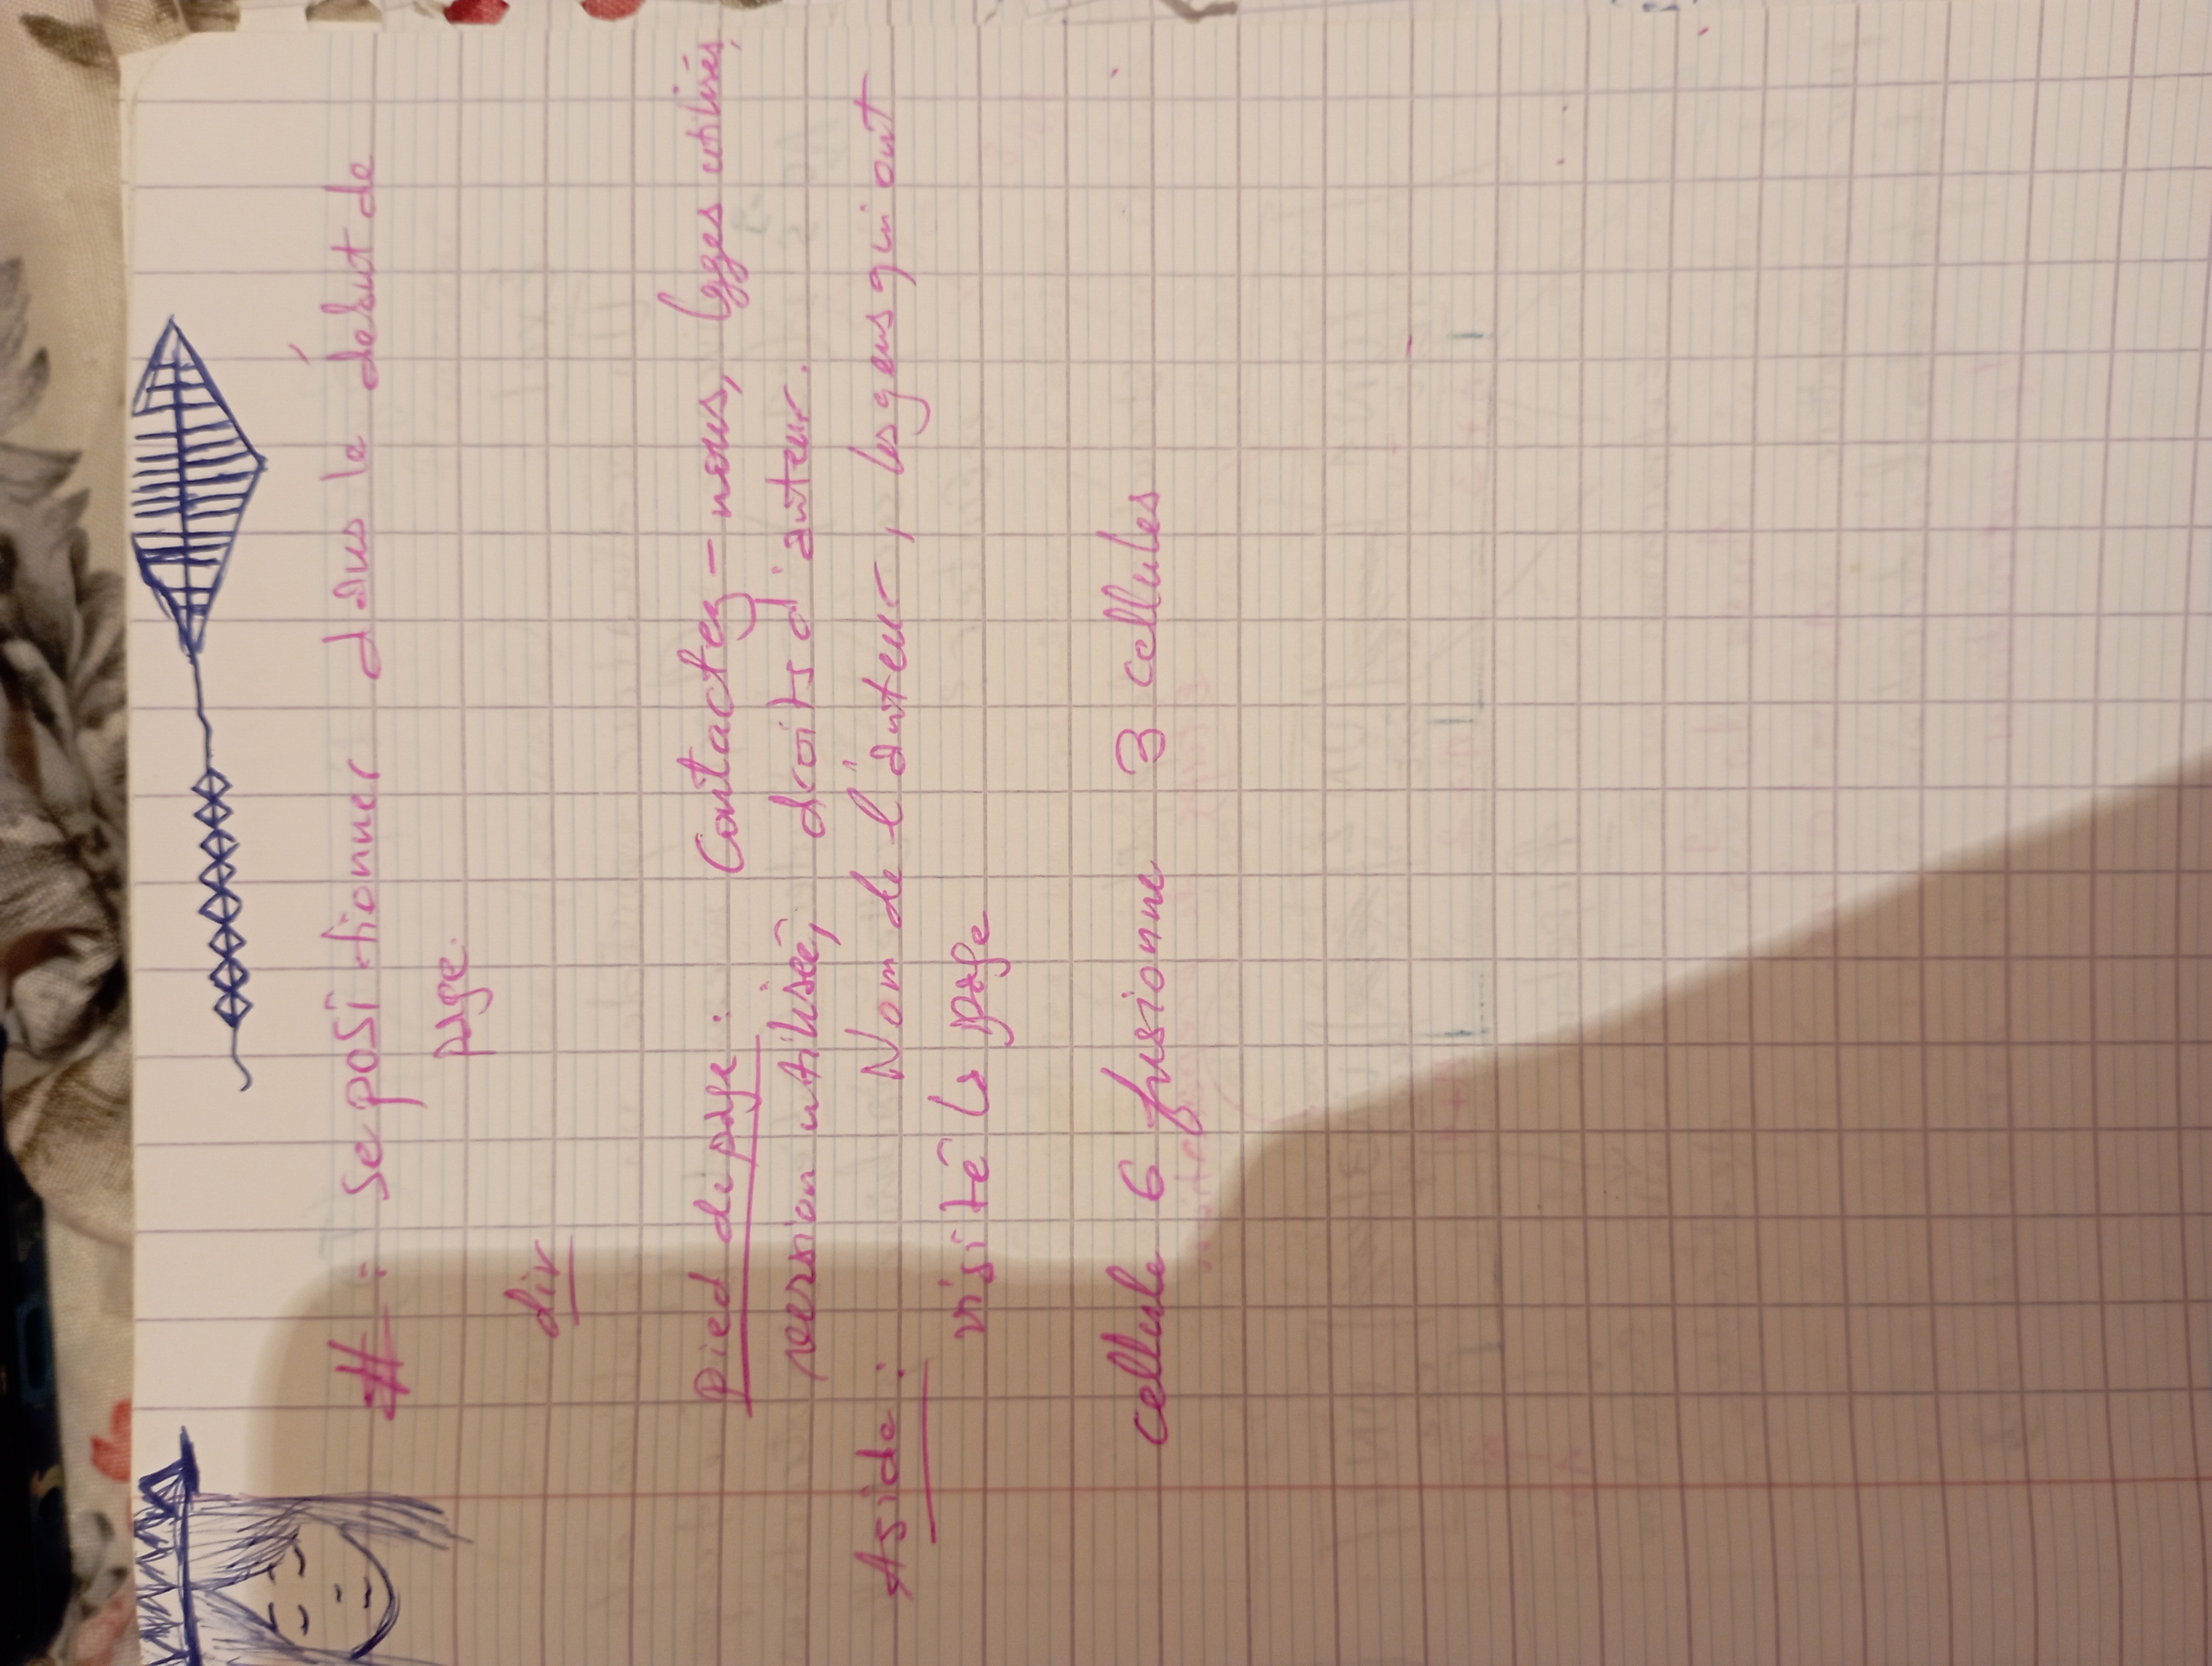 # : Se positionner dans le début de
page.
div
Pied de page : Contactez-nous, lgges utilisés,
version utilisée, droits d'auteur.
Aside : Nom de l'auteur, les gens qui ont
visité la page
cellule 6 fusionne 3 cellules